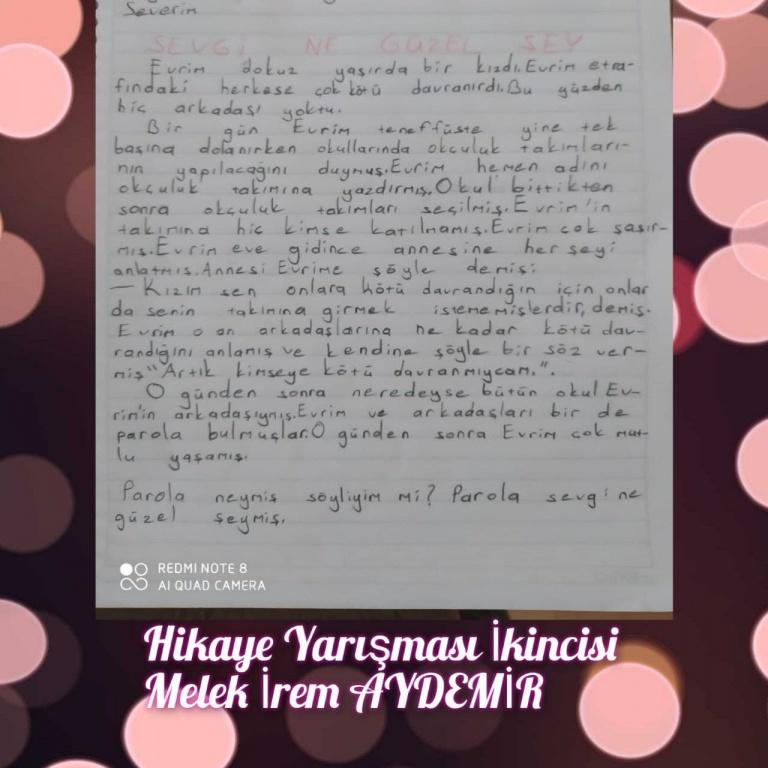 Severim
SEVGİ NE GÜZEL ŞEY
Evrim dokuz yaşında bir kızdı.Evrim etra-
fındaki herkese çok kötü davranırdı.Bu yüzden
hiç arkadaşı yoktu.
Bir gün Evrim teneffüste yine tek
başına dolanırken okullarında okçuluk takımları-
nın yapılacağını duymuş.Evrim hemen adını
okçuluk takımına yazdırmış.Okul bittikten
sonra okçuluk takımları seçilmiş.Evrim'in
takımına hiç kimse katılmamış.Evrim çok şaşır-
mış.Evrim eve gidince annesine her şeyi
anlatmış.Annesi Evrime şöyle demiş:
— Kızım sen onlara kötü davrandığın için onlar
da senin takımına girmek istememişlerdir, demiş.
Evrim o an arkadaşlarına ne kadar kötü dav-
randığını anlamış ve kendine şöyle bir söz ver-
miş "Artık kimseye kötü davranmıycam.".
O günden sonra neredeyse bütün okul Ev-
rim'in arkadaşıymış.Evrim ve arkadaşları bir de
parola bulmuşlar.O günden sonra Evrim çok mut-
lu yaşamış.
Parola neymiş söyliyim mi? Parola sevgi ne
güzel şeymiş.
REDMI NOTE 8
AI QUAD CAMERA
Hikaye Yarışması İkincisi
Melek İrem AYDEMİR